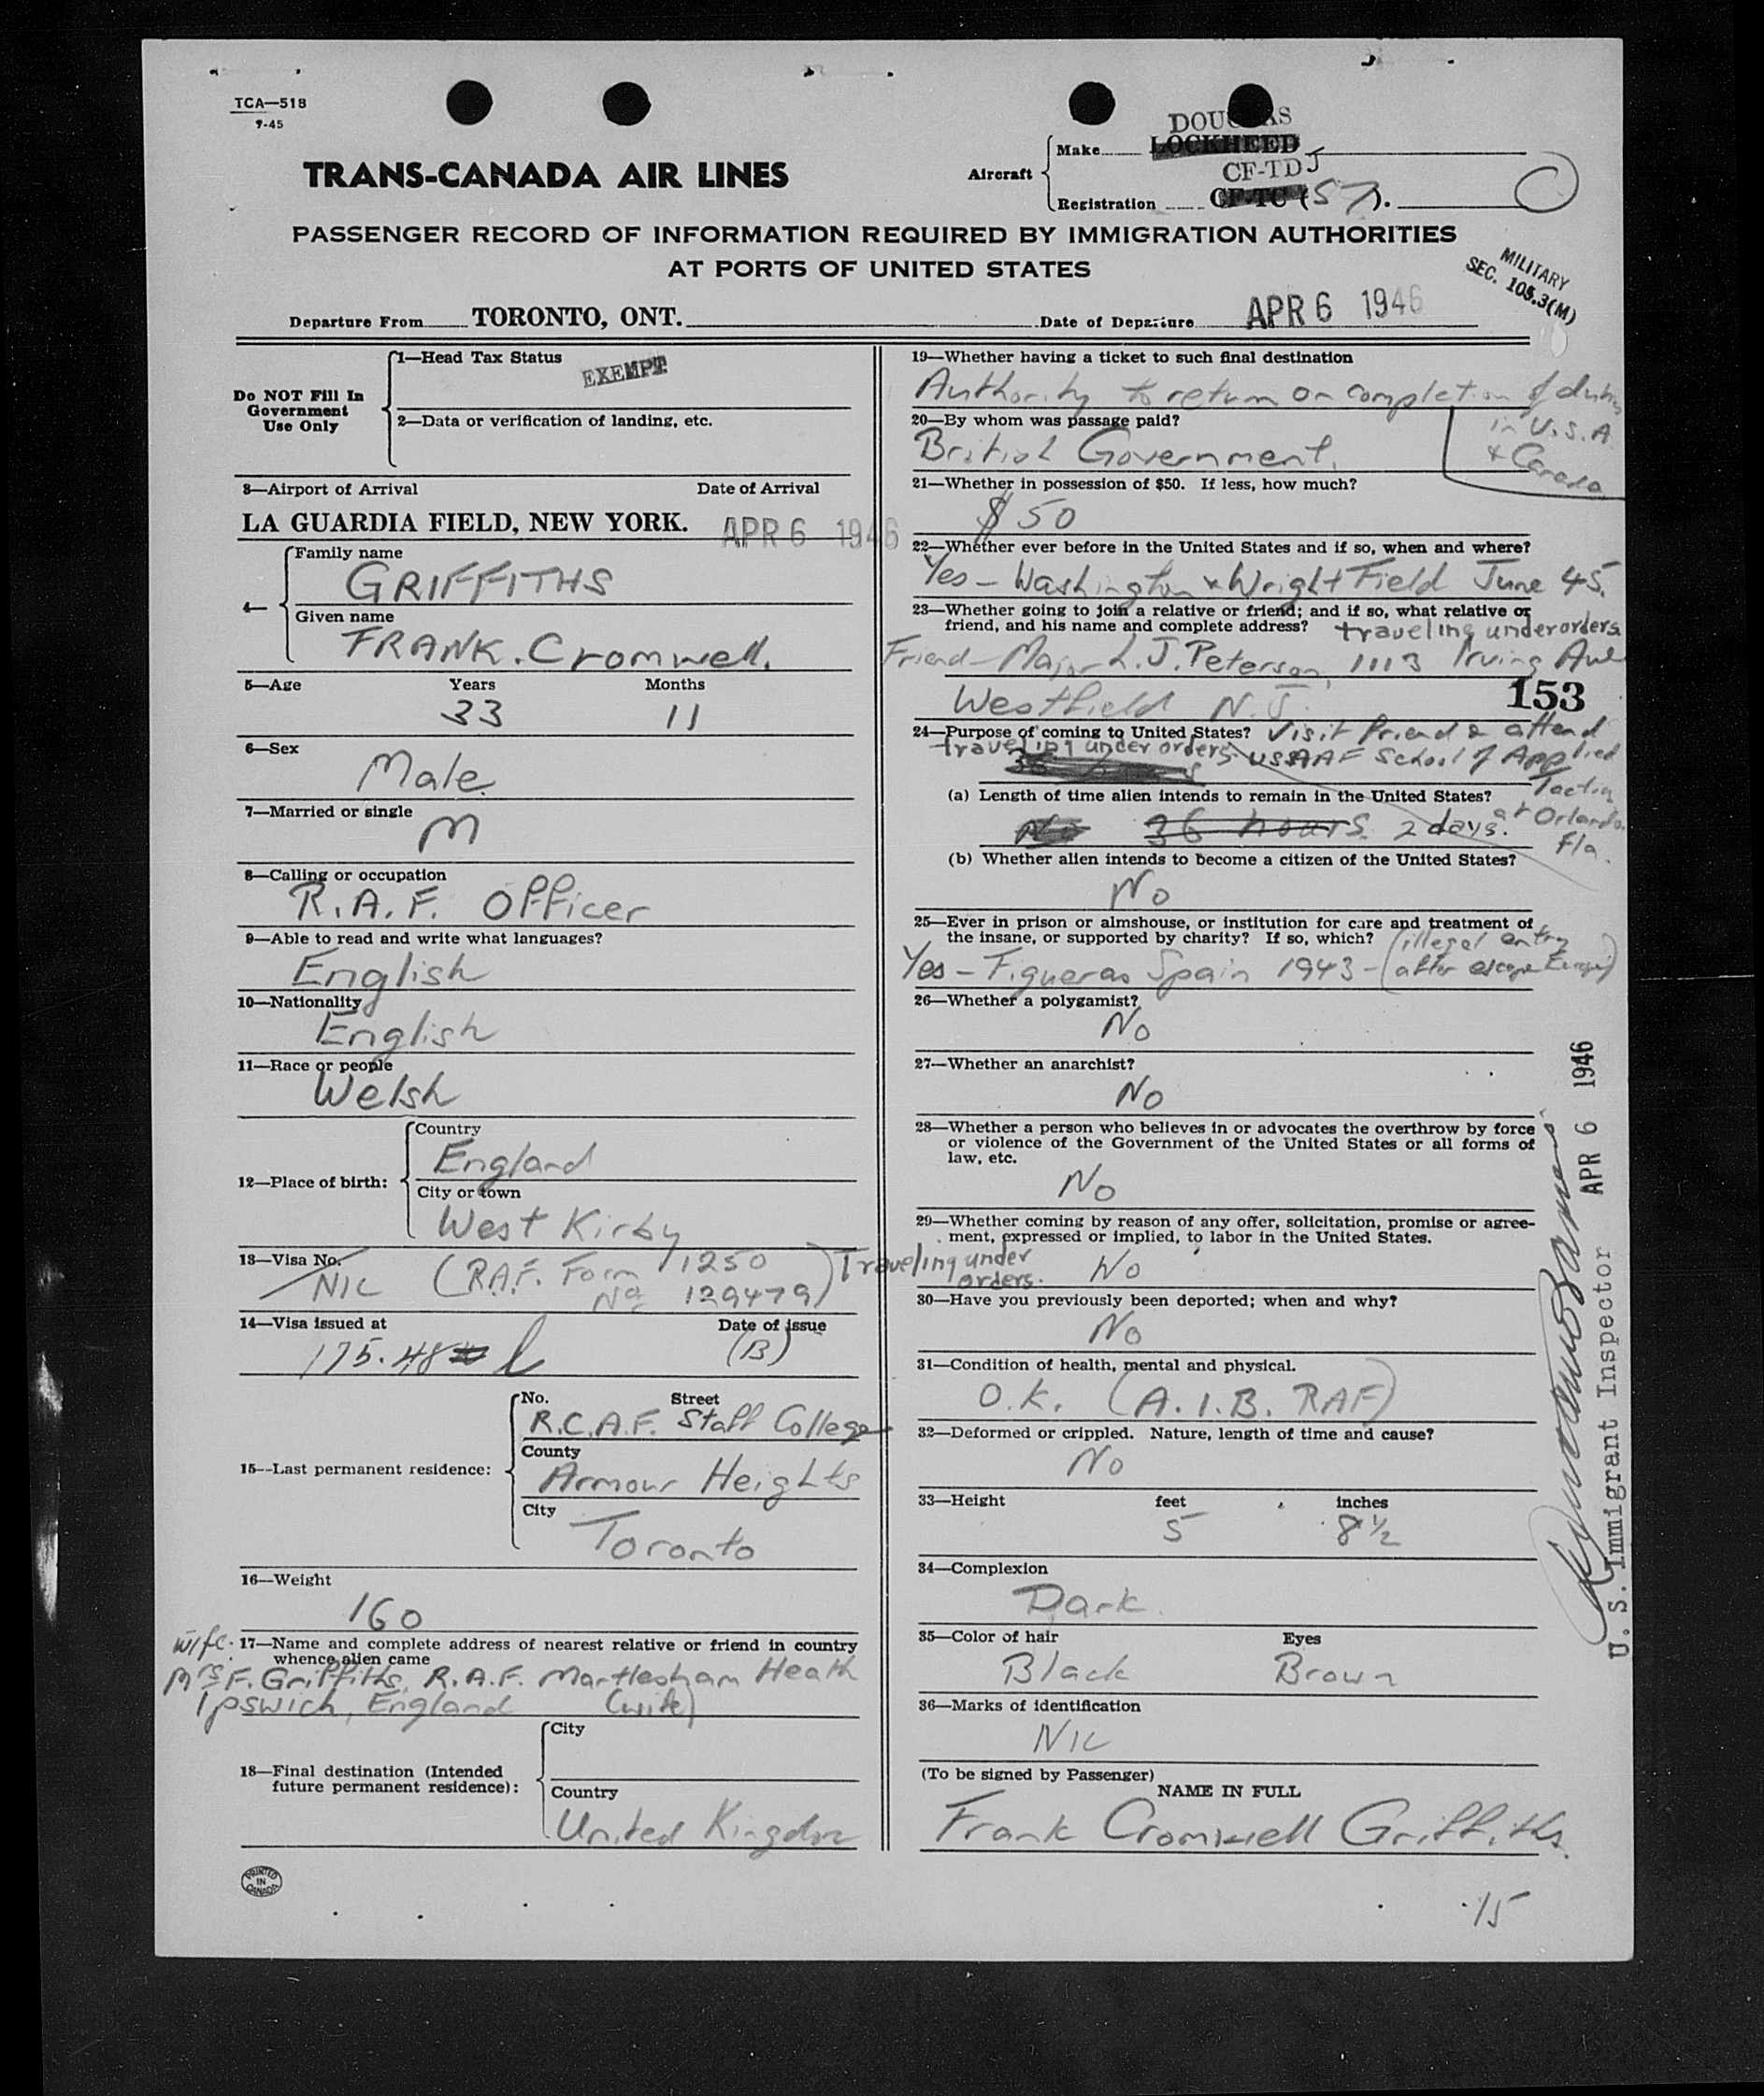 TCA—518
9-45
TRANS-CANADA AIR LINES
Aircraft
Make
DOUGLAS
LOCKHEED
Registration
CF-TDJ
CF-TC (57).
PASSENGER RECORD OF INFORMATION REQUIRED BY IMMIGRATION AUTHORITIES
AT PORTS OF UNITED STATES
MILITARY
SEC. 105.3(M)
Departure From TORONTO, ONT.
Date of Departure APR 6 1946
Do NOT Fill In
Government
Use Only
1—Head Tax Status
EXEMPT
2—Data or verification of landing, etc.
3—Airport of Arrival Date of Arrival
LA GUARDIA FIELD, NEW YORK. APR 6 1946
4—
Family name
GRIFFITHS
Given name
FRANK. Cromwell.
5—Age Years Months
33 11
6—Sex
Male
7—Married or single
M
8—Calling or occupation
R.A.F. Officer
9—Able to read and write what languages?
English
10—Nationality
English
11—Race or people
Welsh
12—Place of birth:
Country
England
City or town
West Kirby
13—Visa No.
NIL (R.A.F. Form 1250
No 129479) Traveling under
orders.
14—Visa issued at Date of issue
175.48 (B)
15—Last permanent residence:
No. Street
R.C.A.F. Staff College
County
Armour Heights
City
Toronto
16—Weight
160
wife. 17—Name and complete address of nearest relative or friend in country
whence alien came
Mrs F. Griffiths, R.A.F. Martlesham Heath
Ipswich, England (wife)
18—Final destination (Intended
future permanent residence):
City
Country
United Kingdom
PRINTED
IN
CANADA
19—Whether having a ticket to such final destination
Authority to return on completion of duties
in U.S.A
& Canada
20—By whom was passage paid?
British Government.
21—Whether in possession of $50. If less, how much?
$50
22—Whether ever before in the United States and if so, when and where?
Yes - Washington & Wright Field June 45.
23—Whether going to join a relative or friend; and if so, what relative or
friend, and his name and complete address? traveling under orders.
Friend - Major L.J. Peterson, 1113 Irving Ave
Westfield N.J.
153
24—Purpose of coming to United States? Visit friend & attend
traveling under orders USAAF School of Applied
Tactics
at Orlando.
Fla.
(a) Length of time alien intends to remain in the United States?
36 hours. 2 days.
(b) Whether alien intends to become a citizen of the United States?
No
25—Ever in prison or almshouse, or institution for care and treatment of
the insane, or supported by charity? If so, which? (illegal entry
Yes - Figueras Spain 1943 - (after escape Europe)
26—Whether a polygamist?
No
27—Whether an anarchist?
No
28—Whether a person who believes in or advocates the overthrow by force
or violence of the Government of the United States or all forms of
law, etc.
No
29—Whether coming by reason of any offer, solicitation, promise or agree-
ment, expressed or implied, to labor in the United States.
No
30—Have you previously been deported; when and why?
No
31—Condition of health, mental and physical.
O.K. (A.I.B. RAF)
32—Deformed or crippled. Nature, length of time and cause?
No
33—Height feet inches
5 8½
34—Complexion
Dark
35—Color of hair Eyes
Black Brown
36—Marks of identification
NIL
(To be signed by Passenger)
NAME IN FULL
Frank Cromwell Griffiths.
15
U. S. Immigrant Inspector APR 6 1946